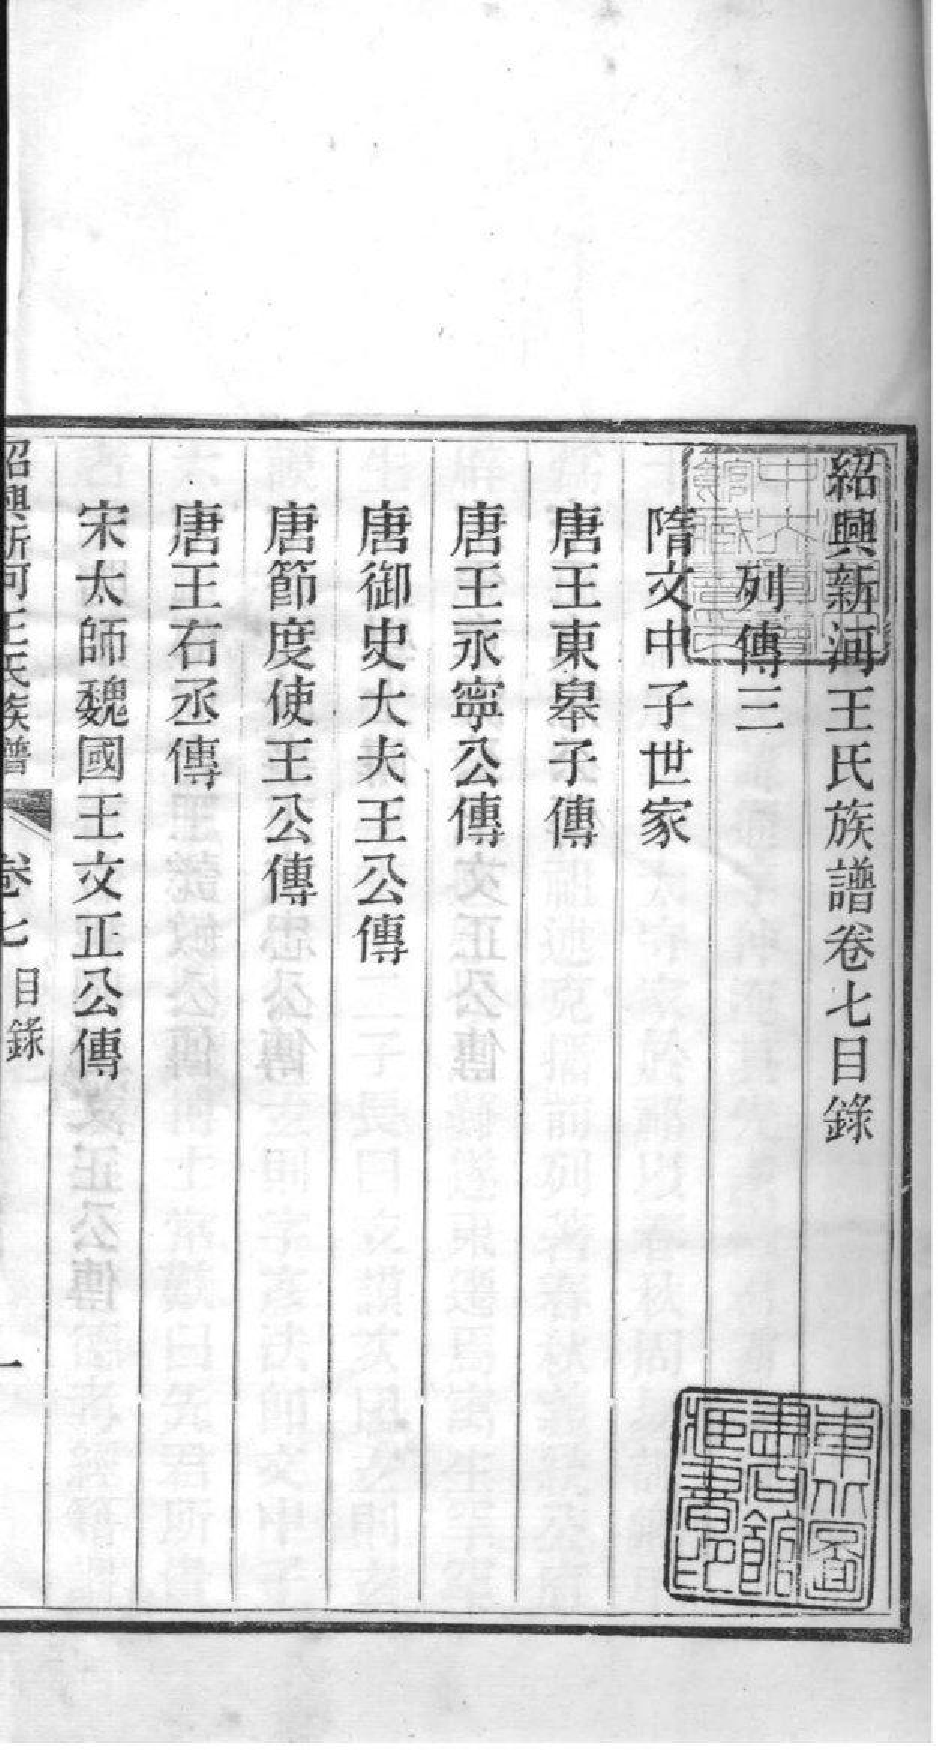 紹興新河王氏族譜卷七目錄
列傳三
隋文中子世家
唐王東皋子傳
唐王永寧公傳
唐御史大夫王公傳
唐節度使王公傳
唐王右丞傳
宋太師魏國王文正公傳
紹興新河王氏族譜
卷七
目錄
一